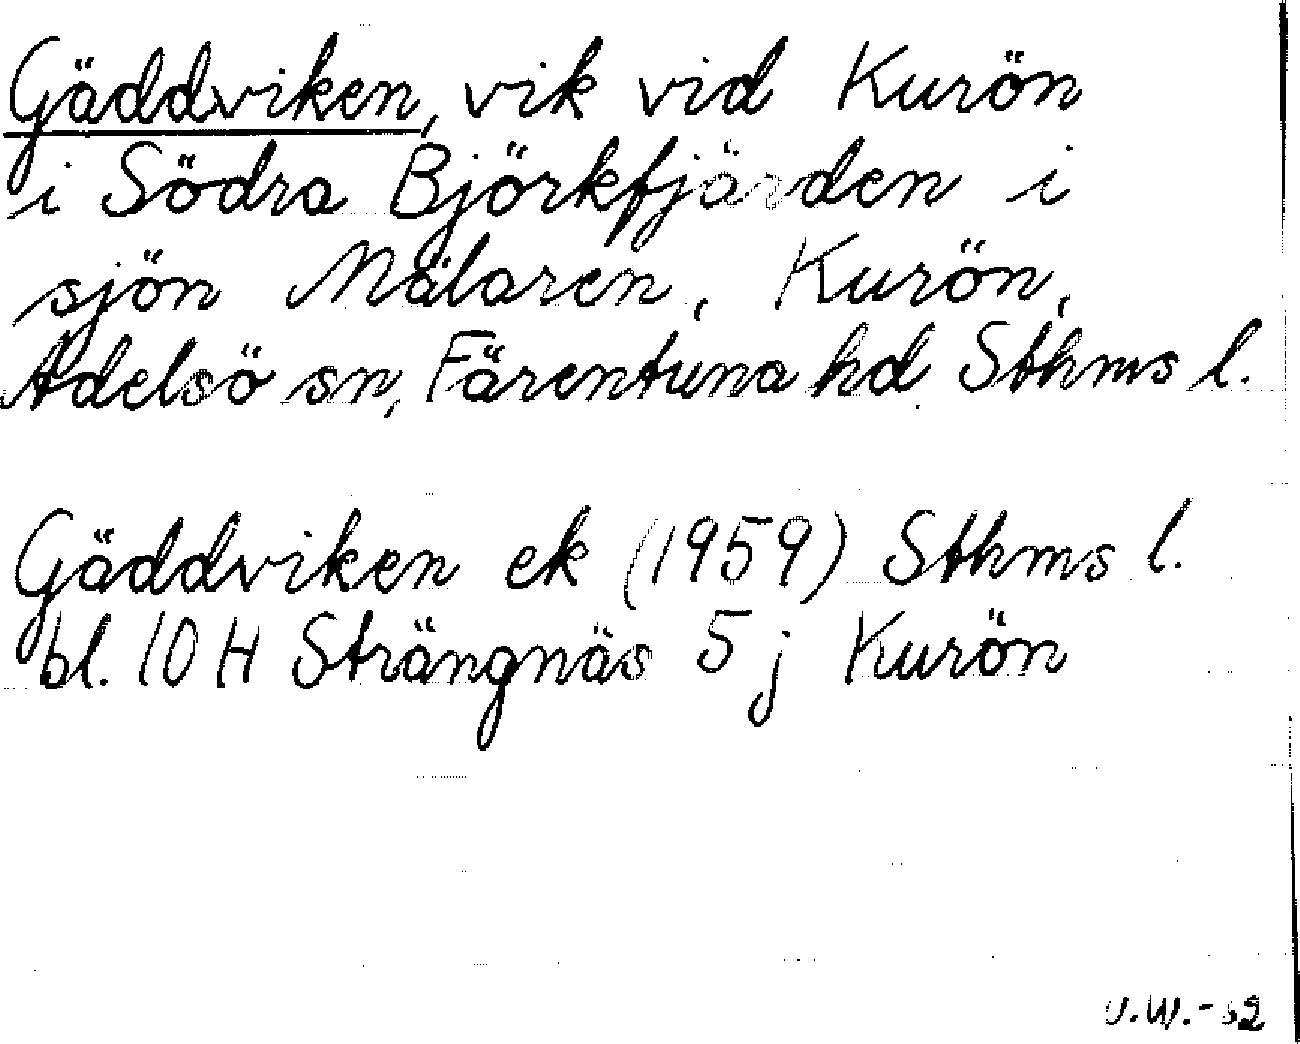 Gäddviken, vik vid Kurön
i Södra Björkfjärden i
sjön Mälaren, Kurön,
Adelsö sn, Färentuna hd Sthms l.
Gäddviken ek (1959) Sthms l.
bl. 10 H Strängnäs 5 j Kurön